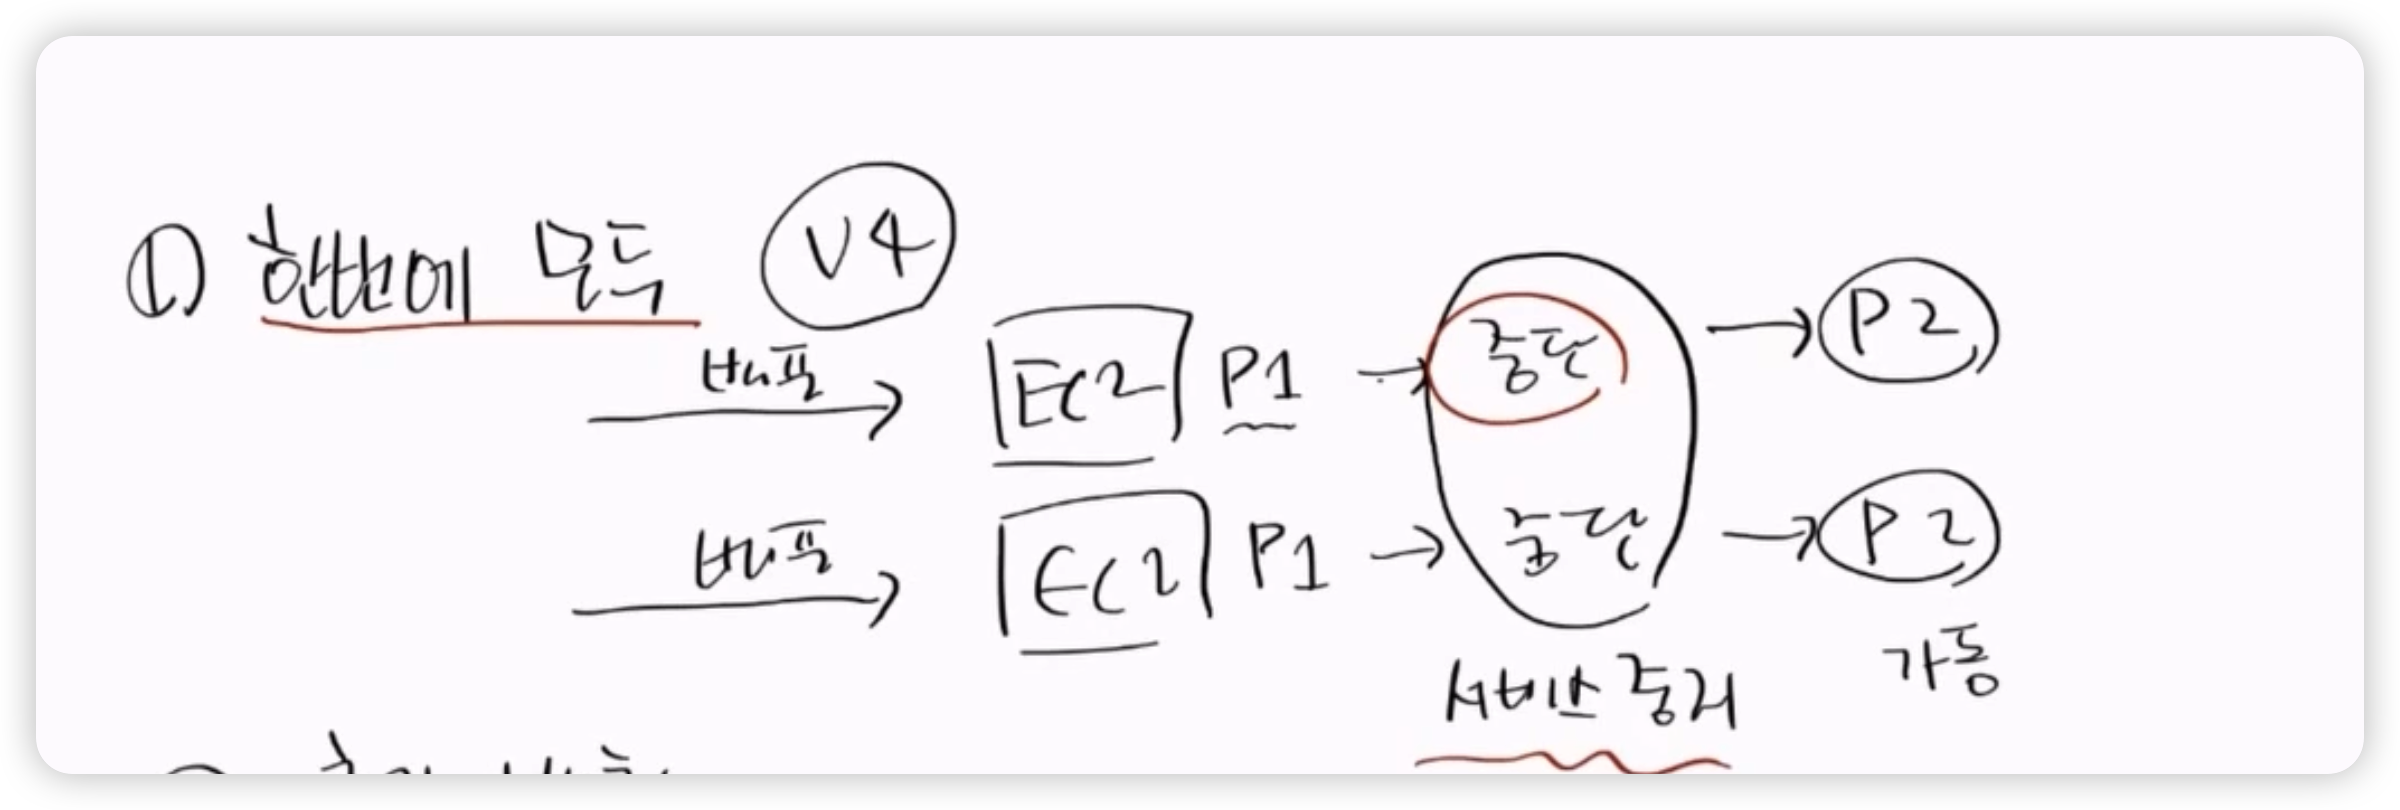 ① 한번에 모두 V4
배포 EC2 P1 → 중단 → P2
배포 EC2 P1 → 중단 → P2
서비스 중지 가동